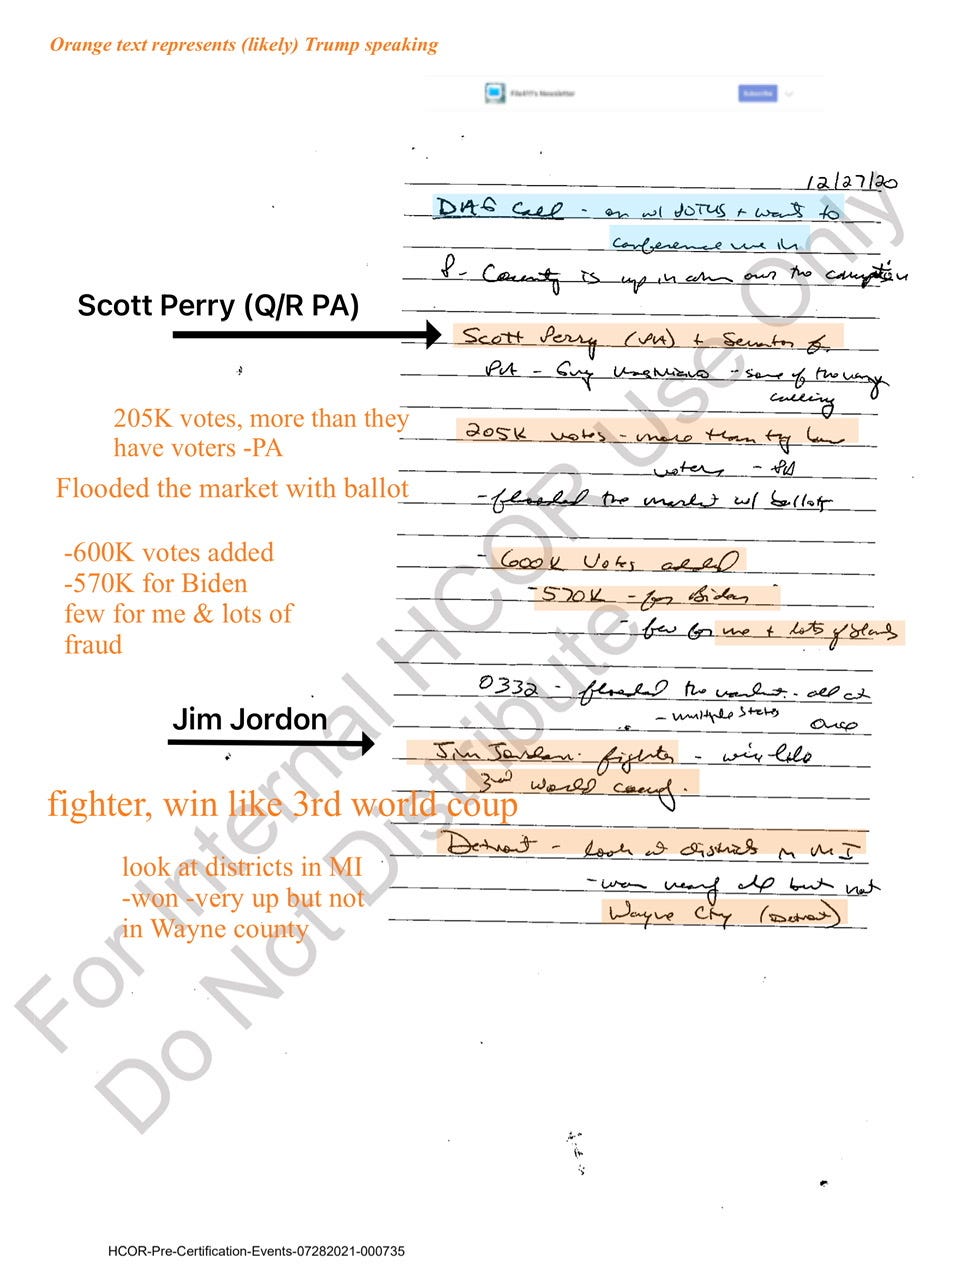 Orange text represents (likely) Trump speaking
File411's Newsletter
Subscribe
12/27/20
DAG Call - on w/ POTUS + want to
conference me in
P- Country is up in over the corruption
Scott Perry (Q/R PA)
Scott Perry (PA) + Senator
PA - - some of the
calling
205K votes, more than they
have voters -PA
205K votes - more than they have
voters - PA
Flooded the market with ballot
- flooded the market w/ ballots
-600K votes added
-570K for Biden
few for me & lots of
fraud
- 600K Votes added
- 570K - for Biden
- few for me + lots of
0332 - flooded the market - all at
- multiple states once
Jim Jordon
Jim Jordan fighter -
3rd world
fighter, win like 3rd world coup
Detroit - look at districts in MI
look at districts in MI
-won -very up but not
in Wayne county
- won but not
Wayne Cty (Detroit)
For Internal HCOR Use Only
Do Not Distribute
HCOR-Pre-Certification-Events-07282021-000735